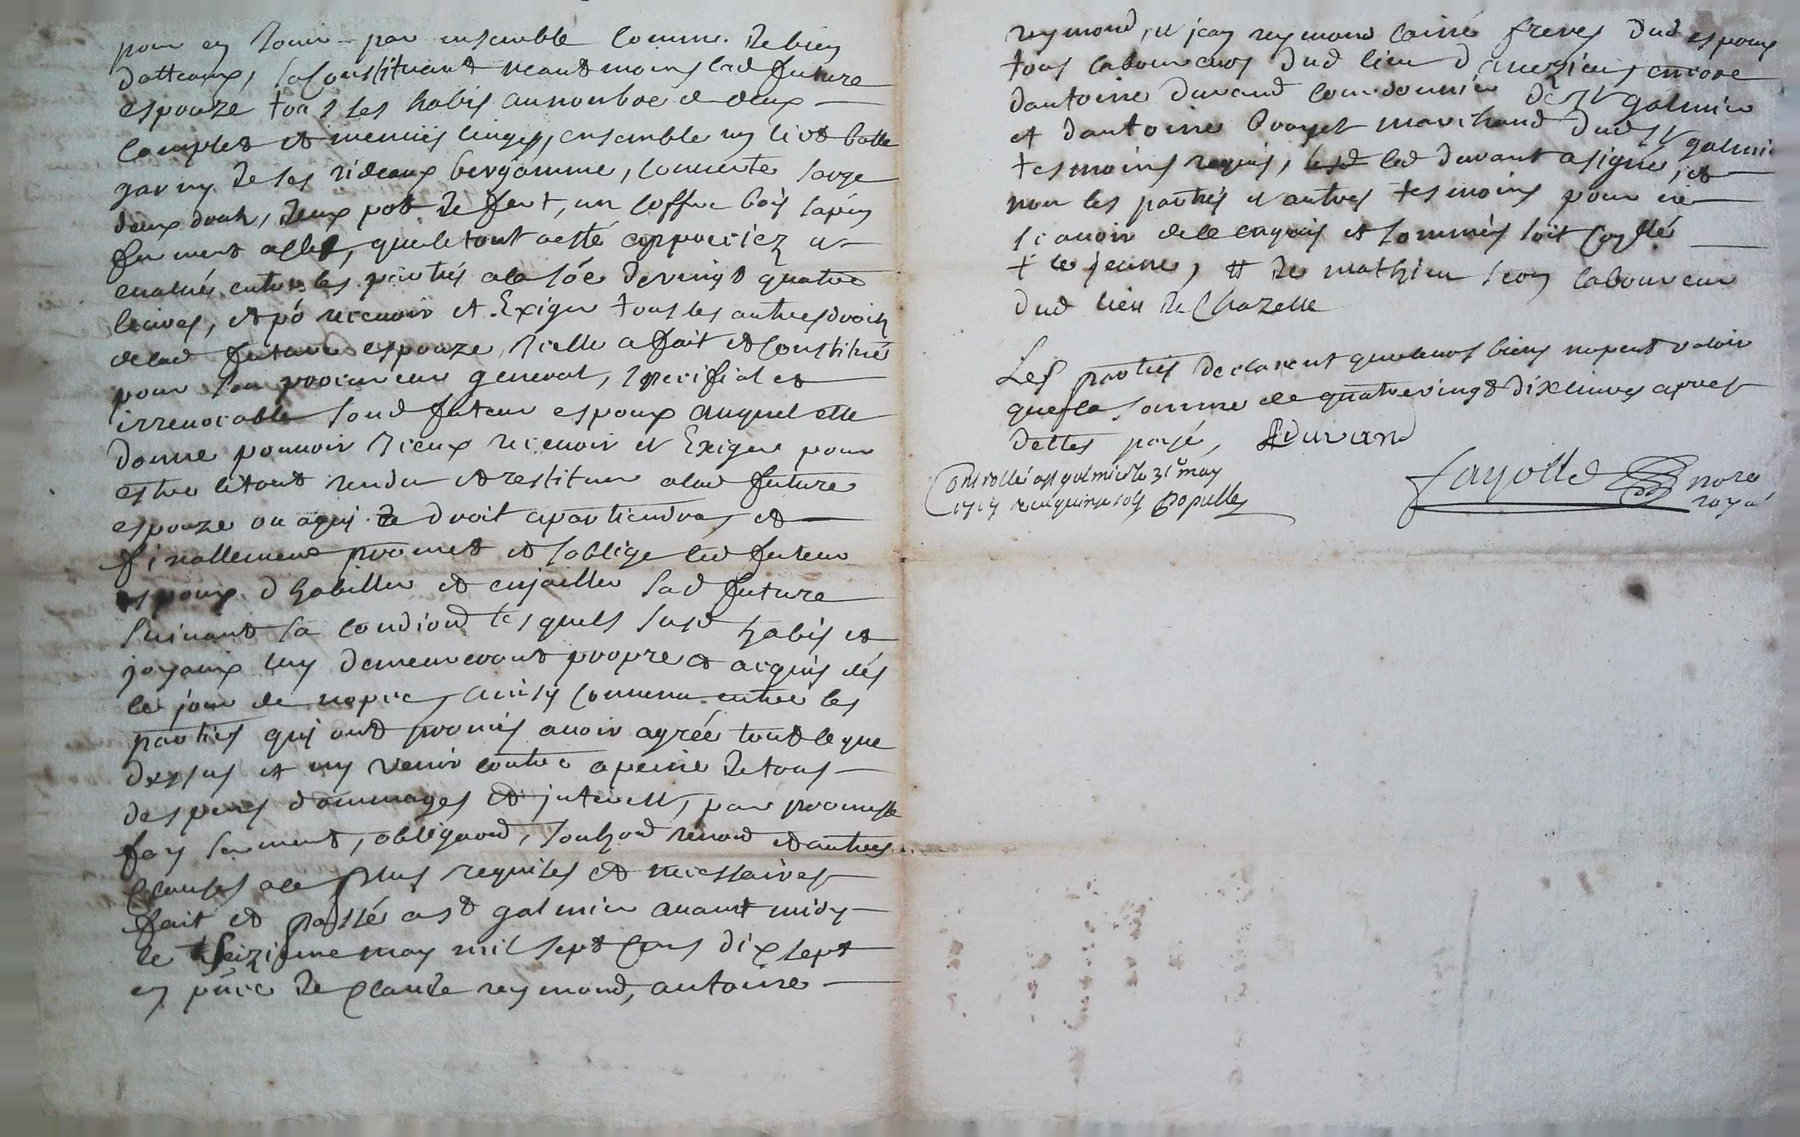 pour en Jouir par ensemble comme de bien
dotteaux, Se Constituant neantmoins lad future
espouze tous ses habis au nombre de deux
complet et menuës linges, ensemble un lict
garny de ses rideaux bergamme, couverte sarge
deux draps, deux pots de fert, un coffre bois sapin
fermant a clef, que le tout a esté appreciez et
evalué entre les parties a la sõe de vingt quatre
livres, et põ recevoir et Exiger tous les autres droits
de lad future espouze, Icelle a fait et constitué
pour son procureur general, specifial et
irrevocable sond futeur espoux auquel elle
donne pouvoir d'Iceux recevoir et Exiger pour
estre le tout rendu et restitué a lad future
espouze ou a qui de droit apartiendra, et
finallement promet et s'oblige led futeur
espoux d'habiller et enjoiller sad future
suivant sa condiond lesquels susd habis et
joyaux luy demeureront propre et acquis dés
le jour de nopces, ainsy convenu entre les
parties qui ont promis avoir agréé tout ce que
dessus et ny venir contre a peine de tous
despens dommages et interests, par promesse
foy serment, obligaond, soubzond renond et autres
clauses a ce plus requises et necessaires
fait et passé a st galmier avant midy
le seizieme may mil sept cens dix sept
en pñce de claude reymond, antoine
reymond, et jean reymond l'ainé freres dud espoux
tous laboureurs dud lieu d encore
d'antoine durand courdounier de st galmier
et d'antoine marchand dud st galmier
tesmoins requis, led durant a signé, et
non les parties et autres tesmoins pour ne
scavoir de ce enquis et sommés soit
+ le jeune, # de mathieu laboureur
dud lieu de Chazelle
Les parties declarent que leurs biens n'opent valoir
que la somme de quatre vingt dix livres apres
dettes payé, ADurand
Controllé a st galmier le 31e may
1717 Populle
Fayolle nore
royal